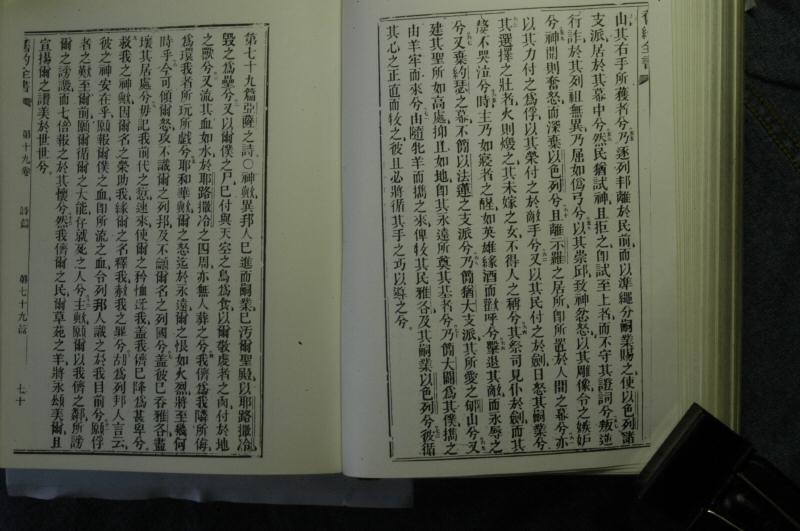 舊約全書
山其右手所獲者兮乃逐列邦離於民前而以準繩分嗣業賜之使以色列諸
支派居於其幕中兮然民猶試神且拒之卽試至上者而不守其證詞兮叛逆
行詐於其列祖無異乃屈如僞弓兮以其崇邱致神忿怒以其雕像令之嫉妒
兮神聞則奮怒而深棄以色列兮且離示羅之居所卽所置於人間之幕兮亦
以其力付之爲俘以其榮付之於敵手兮又以其民付之於劍日怒其嗣業兮
其選擇之壯者火則燬之其未嫁之女不得人之稱兮其祭司見仆於劍而其
嫠不哭泣兮時主乃如寢者之醒如英雄緣酒而歡呼兮擊退其敵而永辱之
兮又棄約瑟之幕不簡以法蓮之支派兮乃簡猶大支派其所愛之郇山兮又
建其聖所如高處抑且如地卽其永遠所奠其基者兮乃簡大闢爲其僕攜之
由羊牢而來兮由隨牝羊而攜之來俾牧其民雅各及其嗣業以色列兮彼循
其心之正直而牧之彼且必將循其手之巧以導之兮
第七十九篇亞薩之詩○神歟異邦人已進而嗣業已汚爾聖殿以耶路撒冷
毀之爲壘兮又以爾僕之尸已付與天空之鳥爲食以爾敬虔者之肉付於地
之獸兮又流其血如水於耶路撒冷之四周亦無人葬之兮我儕爲我隣所侮
爲環我者所玩所戲兮耶和華歟爾之怒迄於永遠爾之恨如火烈將至幾何
時乎今可傾爾怒攻不識爾之列邦及不籲爾名之列國兮蓋彼已吞雅各盡
壞其居處兮毋記我前代之愆速來使爾之矜恤迓我蓋我儕已降爲甚卑兮
救我之神歟因爾名之榮助我緣爾之名釋我赦我之罪兮胡爲列邦人言云
彼之神安在乎願報爾僕之血卽所流之血令列邦人識之於我目前兮願俘
者之歎至爾前願爾循爾之大能存就死之人兮主歟願爾以我儕之鄰所謗
爾之謗讟而七倍報之於其懷兮然我儕爾之民爾草苑之羊將永頌美爾且
宣揚爾之讚美於世世兮
舊約全書 第十九卷 詩篇 第七十九篇 七十